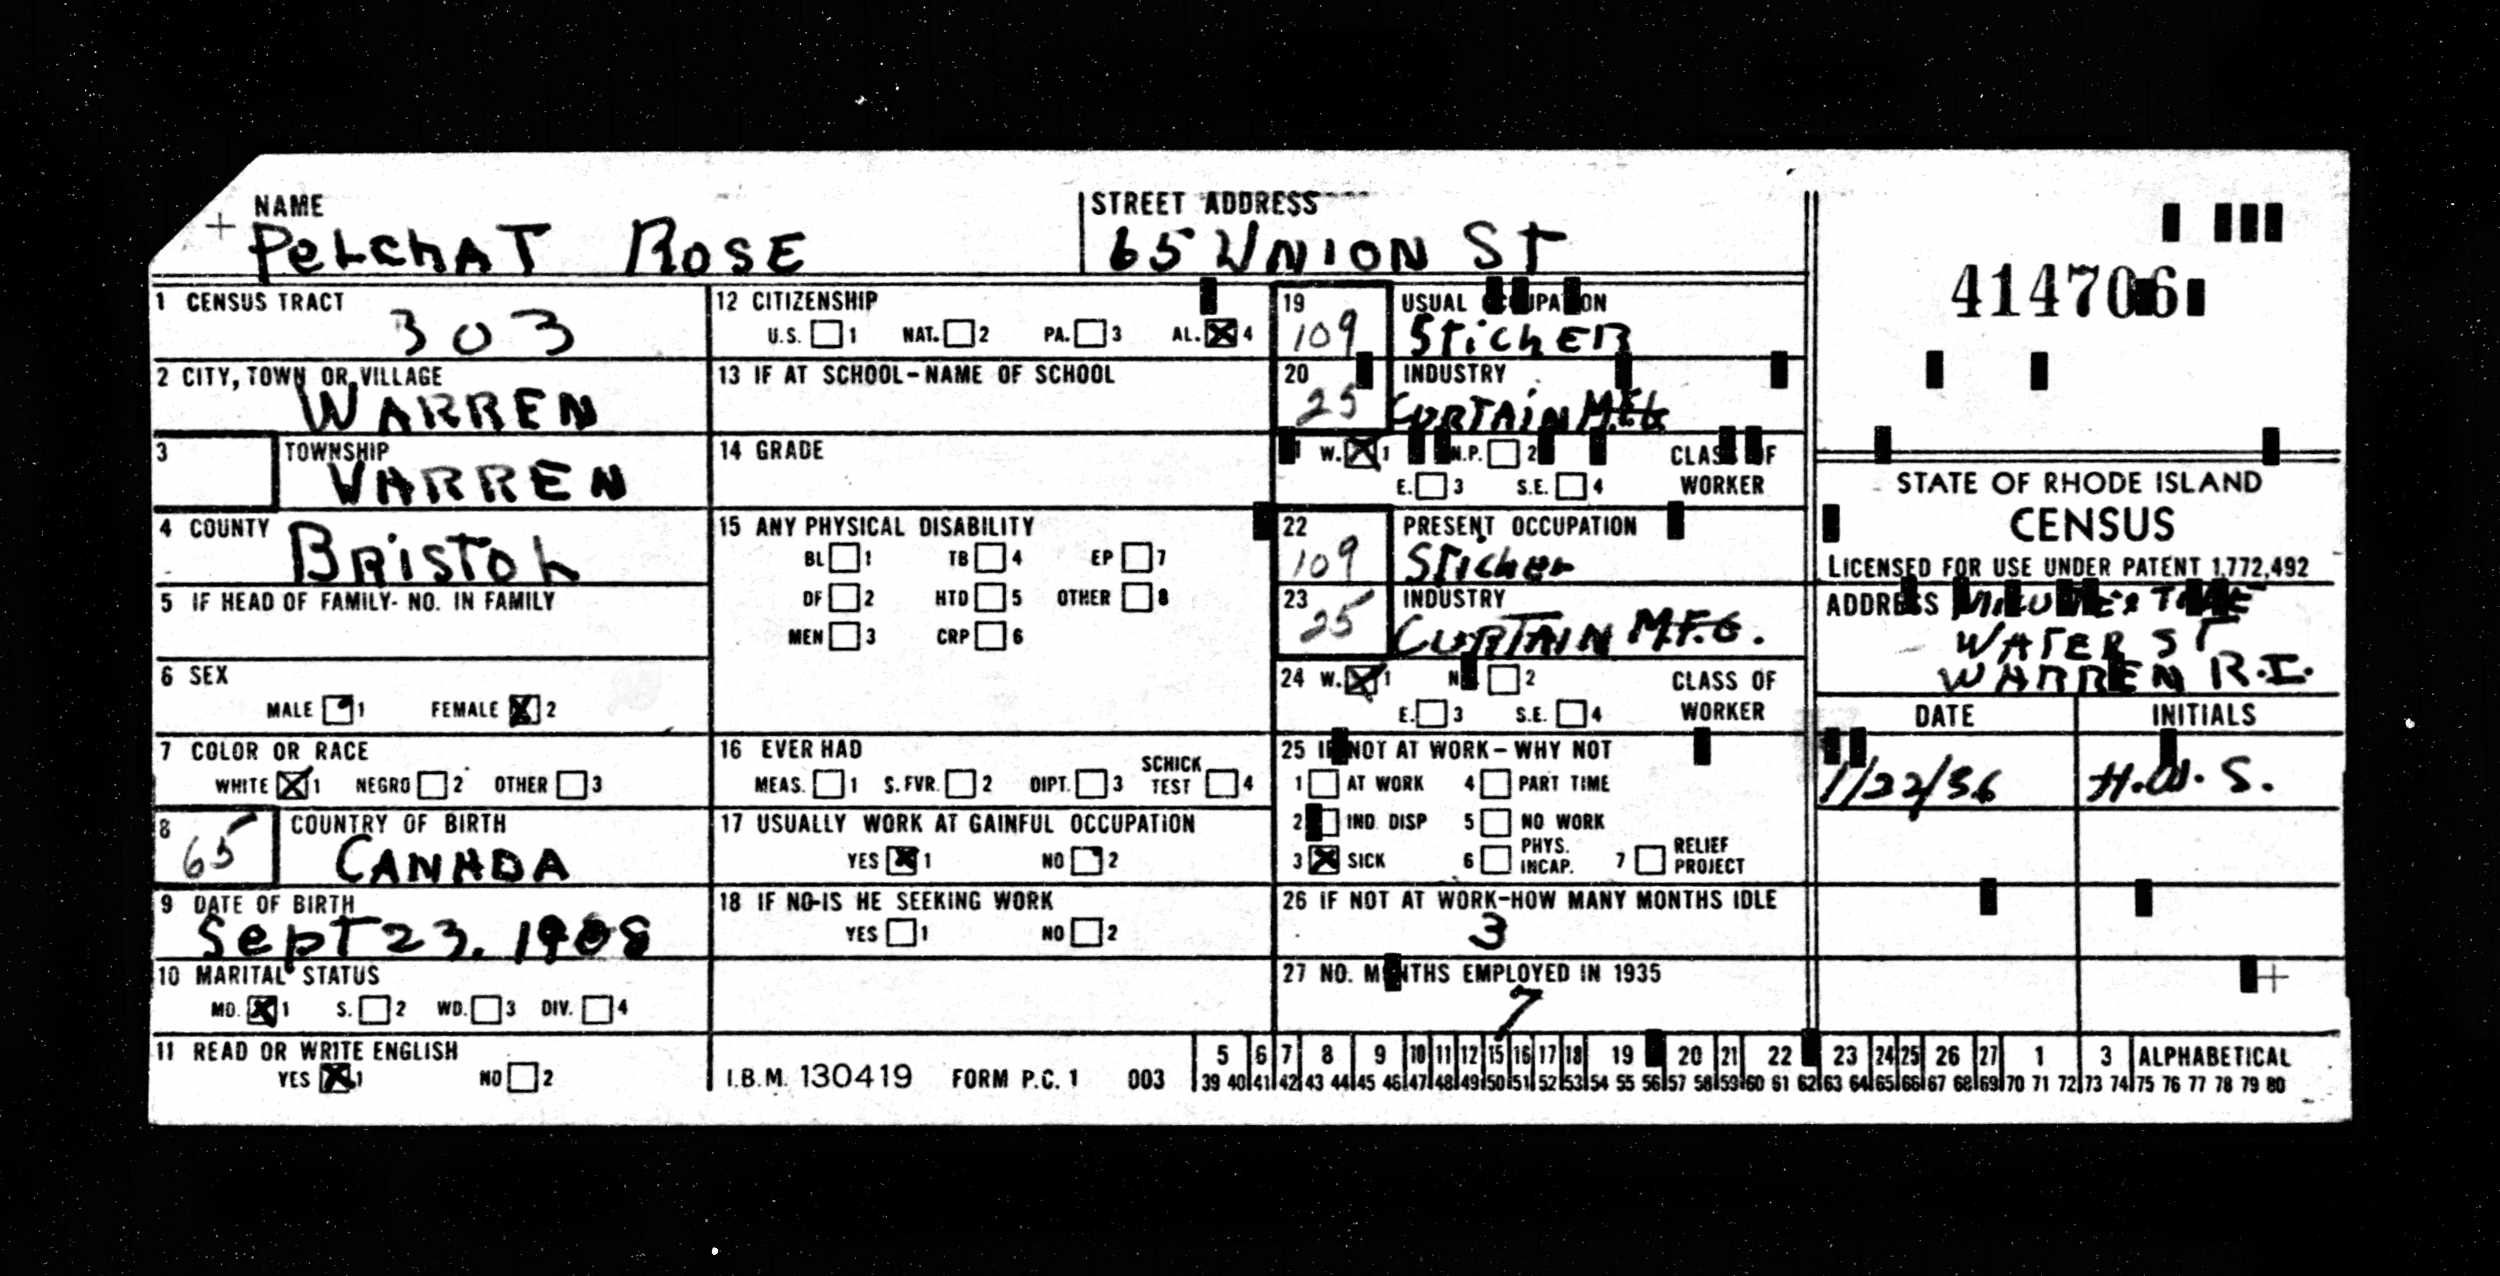 NAME
PELCHAT ROSE
STREET ADDRESS
65 UNION ST
414706
1 CENSUS TRACT
303
2 CITY, TOWN OR VILLAGE
WARREN
3 TOWNSHIP
WARREN
4 COUNTY
BRISTOL
5 IF HEAD OF FAMILY- NO. IN FAMILY
6 SEX
MALE 1 FEMALE X 2
7 COLOR OR RACE
WHITE X 1 NEGRO 2 OTHER 3
8 65 COUNTRY OF BIRTH
CANADA
9 DATE OF BIRTH
Sept 23. 1908
10 MARITAL STATUS
MD. X 1 S. 2 WD. 3 DIV. 4
11 READ OR WRITE ENGLISH
YES X 1 NO 2
12 CITIZENSHIP
U.S. 1 NAT. 2 PA. 3 AL. X 4
13 IF AT SCHOOL-NAME OF SCHOOL
14 GRADE
15 ANY PHYSICAL DISABILITY
BL 1 TB 4 EP 7
DF 2 HTD 5 OTHER 8
MEN 3 CRP 6
16 EVER HAD
MEAS. 1 S. FVR. 2 DIPT. 3 SCHICK TEST 4
17 USUALLY WORK AT GAINFUL OCCUPATION
YES X 1 NO 2
18 IF NO-IS HE SEEKING WORK
YES 1 NO 2
I.B.M. 130419 FORM P.C. 1 003
19 109 USUAL OCCUPATION
STICHER
20 25 INDUSTRY
CURTAIN MFG
W. X 1 N.P. 2 CLASS OF
E. 3 S.E. 4 WORKER
22 109 PRESENT OCCUPATION
Sticher
23 25 INDUSTRY
CURTAIN M.F.G.
24 W. X 1 N 2 CLASS OF
E. 3 S.E. 4 WORKER
25 IF NOT AT WORK-WHY NOT
1 AT WORK 4 PART TIME
2 IND. DISP 5 NO WORK
3 X SICK 6 PHYS. INCAP. 7 RELIEF PROJECT
26 IF NOT AT WORK-HOW MANY MONTHS IDLE
3
27 NO. MONTHS EMPLOYED IN 1935
7
STATE OF RHODE ISLAND
CENSUS
LICENSED FOR USE UNDER PATENT 1,772,492
ADDRESS
WATER ST
WARREN R.I.
DATE INITIALS
1/22/36 H.W.S.
5 6 7 8 9 10 11 12 15 16 17 18 19 20 21 22 23 24 25 26 27 1 3 ALPHABETICAL
39 40 41 42 43 44 45 46 47 48 49 50 51 52 53 54 55 56 57 58 59 60 61 62 63 64 65 66 67 68 69 70 71 72 73 74 75 76 77 78 79 80